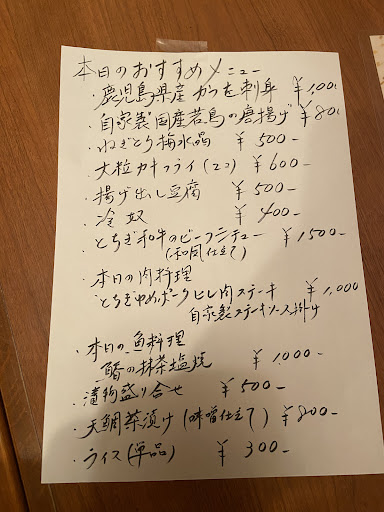 本日のおすすめメニュー
・鹿児島県産 かつを刺身 ¥1,00
・自家製国産若鳥の唐揚げ ¥80
・ねぎとり梅水晶 ¥500-
・大粒カキフライ(2コ) ¥600-
・揚げ出し豆腐 ¥500-
・冷奴 ¥400-
・とちぎ和牛のビーフシチュー ¥1500-
(和風仕立て)
・本日の肉料理
とちぎゆめポークヒレ肉ステーキ ¥1,000
自家製ステーキソース掛け
・本日の魚料理
の抹茶塩焼 ¥1,000-
・漬物盛り合せ ¥500-
・天鯛茶漬け(味噌仕立て) ¥800-
・ライス(単品) ¥300-